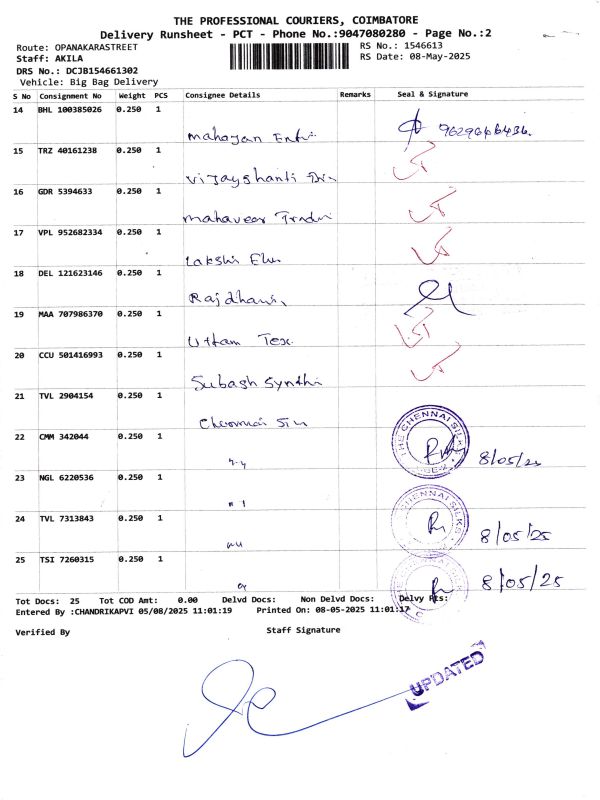 THE PROFESSIONAL COURIERS, COIMBATORE
Delivery Runsheet - PCT - Phone No.:9047080280 - Page No.:2
Route: OPANAKARASTREET
RS No.: 1546613
Staff: AKILA
RS Date: 08-May-2025
DRS No.: DCJB154661302
Vehicle: Big Bag Delivery
S No Consignment No Weight PCS Consignee Details Remarks Seal & Signature
14 BHL 100385026 0.250 1
Mahajan 9629666436.
15 TRZ 40161238 0.250 1
Vijayshanti
16 GDR 5394633 0.250 1
Mahaveer
17 VPL 952682334 0.250 1
Lakshi
18 DEL 121623146 0.250 1
Rajdhani
19 MAA 707986370 0.250 1
Uttam Tex
20 CCU 501416993 0.250 1
Subash Synthi
21 TVL 2904154 0.250 1
Chennai
THE CHENNAI SILKS
22 CMM 342044 0.250 1
8/05/25
23 NGL 6220536 0.250 1
CHENNAI SILKS
24 TVL 7313843 0.250 1
8/05/25
25 TSI 7260315 0.250 1
CHENNAI SILKS
8/05/25
Tot Docs: 25 Tot COD Amt: 0.00 Delvd Docs: Non Delvd Docs: Delvy Pts:
Entered By :CHANDRIKAPVI 05/08/2025 11:01:19 Printed On: 08-05-2025 11:01:17
Verified By
Staff Signature
UPDATED